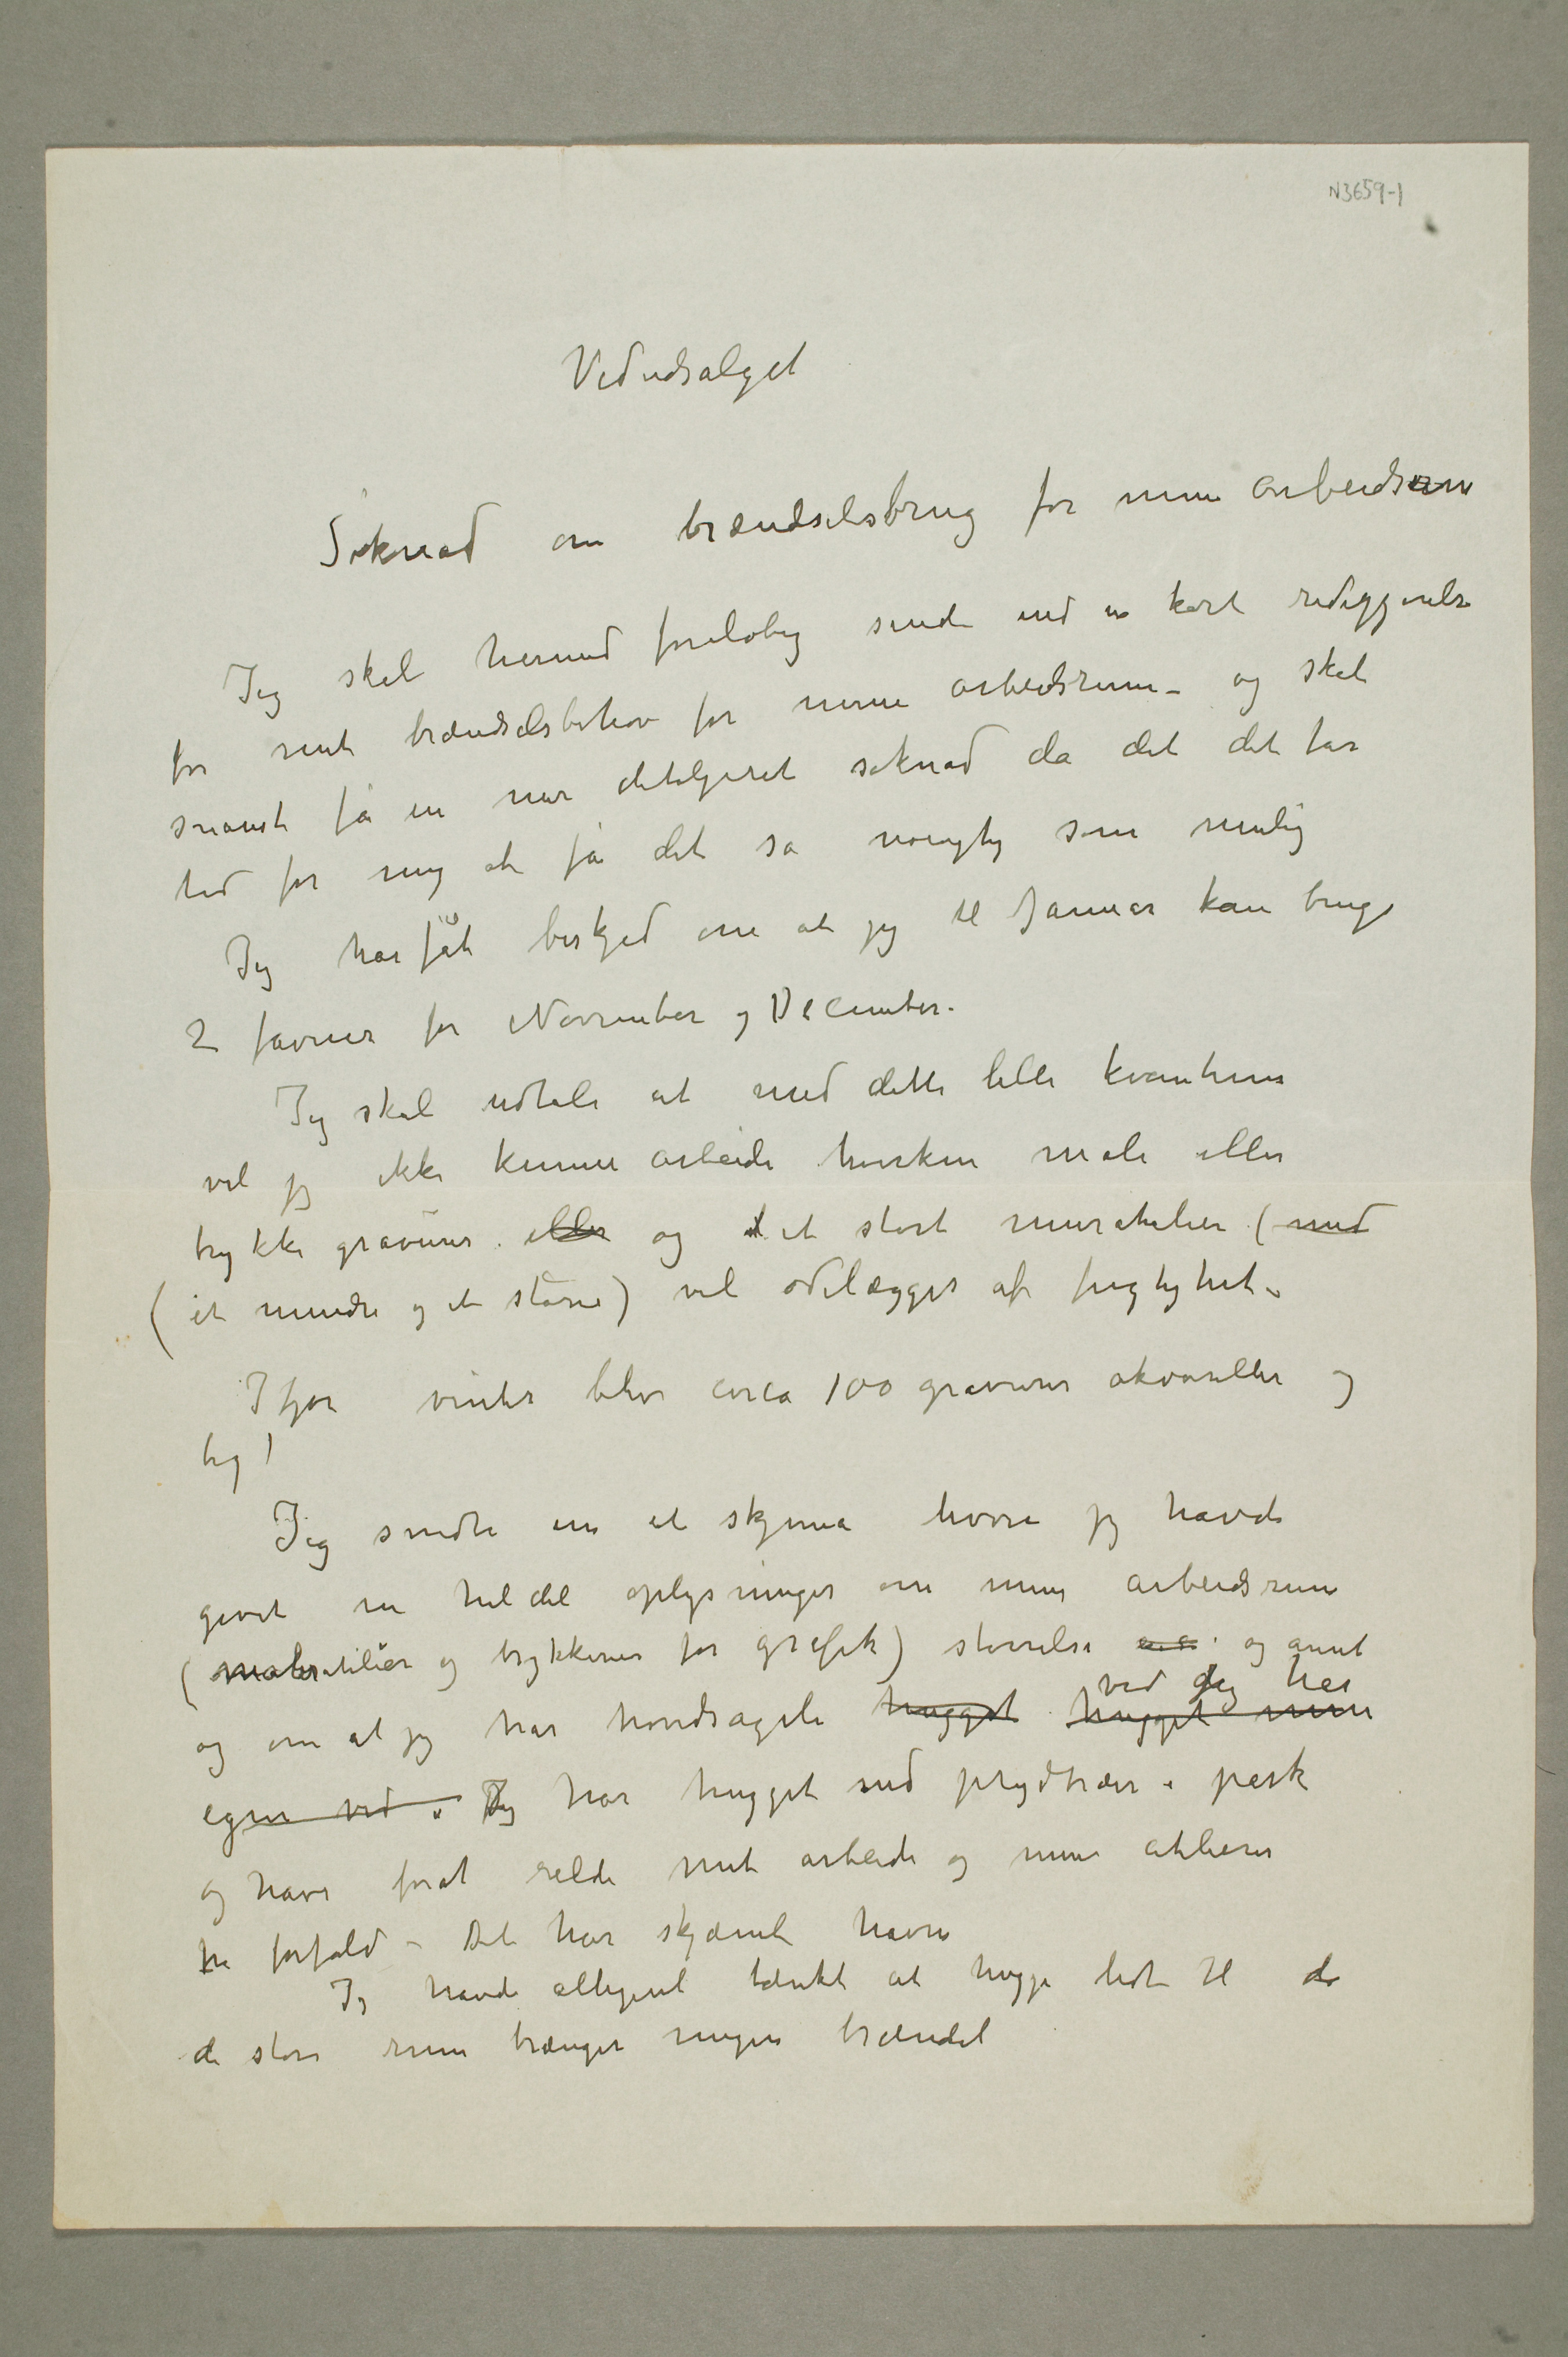 N3659-1
Vedudsalget
Søknad om brændselsbrug for mine arbeidsrum
Jeg skal herved foreløbig sende ind en kort redegjørelse
for mit brændselsbehov for mine arbeidsrum – og skal
snarest få en mer detaljeret søknad da det det tar
tid for mig at få det så nøiagtig som mulig
Jeg har fåt beskjed om at jeg til Januar kan bruge
2 favner for November og December.
Jeg skal udtale at med dette lille kvantum
vil jeg ikke kunne arbeide hverken male eller
trykke gravurer. eller og et stort muratelier (med
(et mindre og et større) vil ødelægges af fugtighet –
Ifjor vinter blev circa 100 gravurer akvareller og
Jeg sendte inn et skjema hvori jeg havde
givet en hel del oplysninger om mine arbeidsrum
(maleratelier og trykkerier for grafik) størrelse og annet
og om at jeg har hovedsagelig hugget hugget mine
ved Jeg har
egen ved. Jeg har hugget ned prydtrær i park
og have forat redde mit arbeide og mine atelierer
fra forfald – Det har skjæmt haven
Jeg havde alligevel tænkt at hugge lidt til da
de store rum trænger megen brændsel